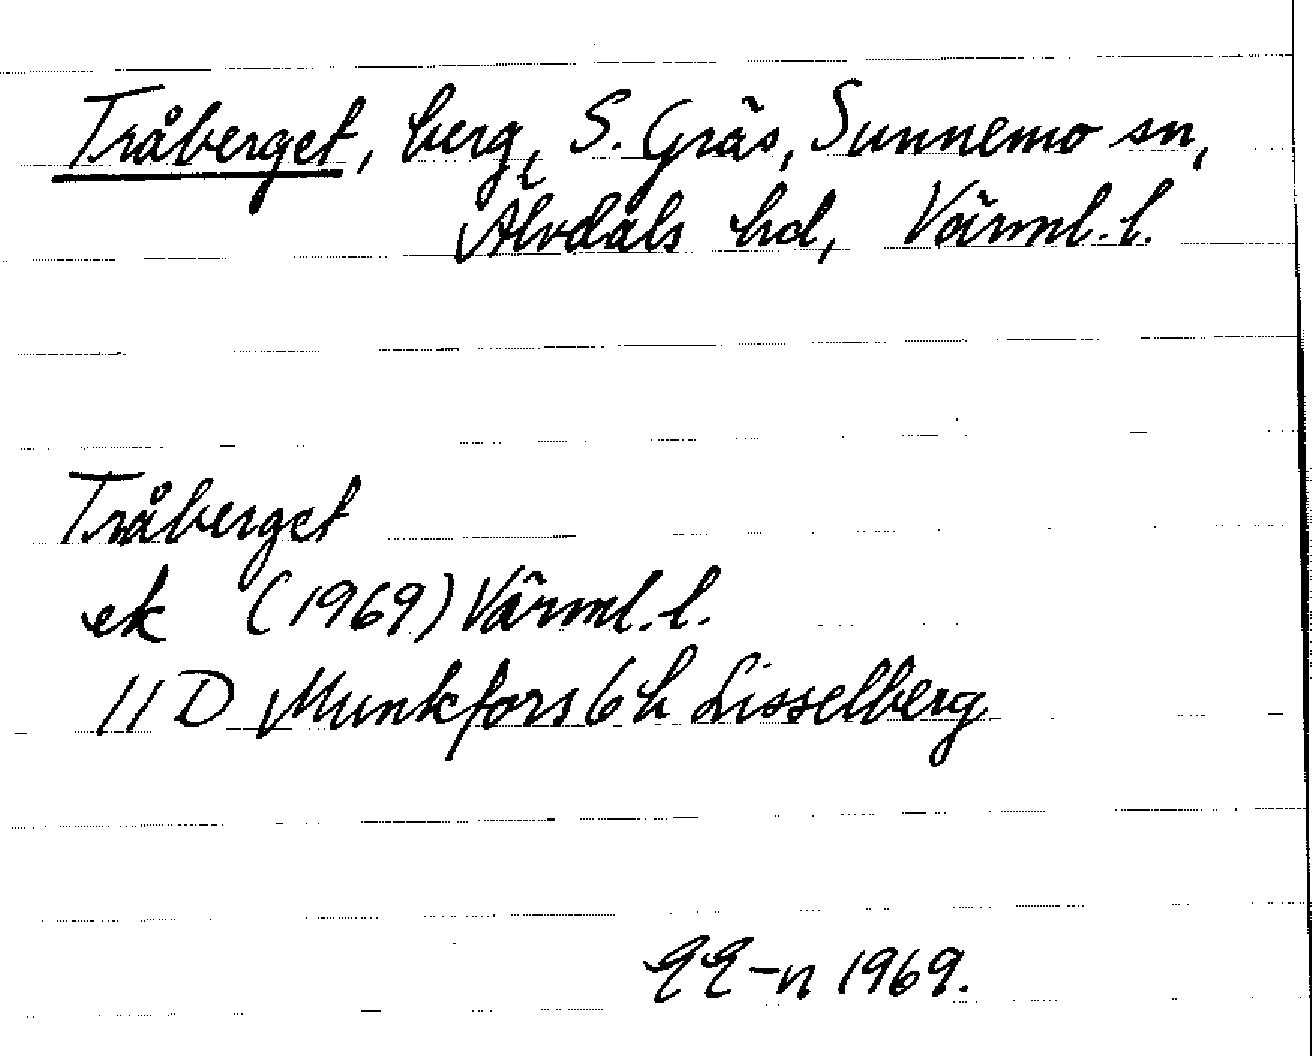 Tråberget, berg, S. Gräs, Sunnemo sn,
Älvdals hd, Värml. l.
Tråberget
ek (1969) Värml. l.
11 D Munkfors 6 h Lisselberg
-n 1969.